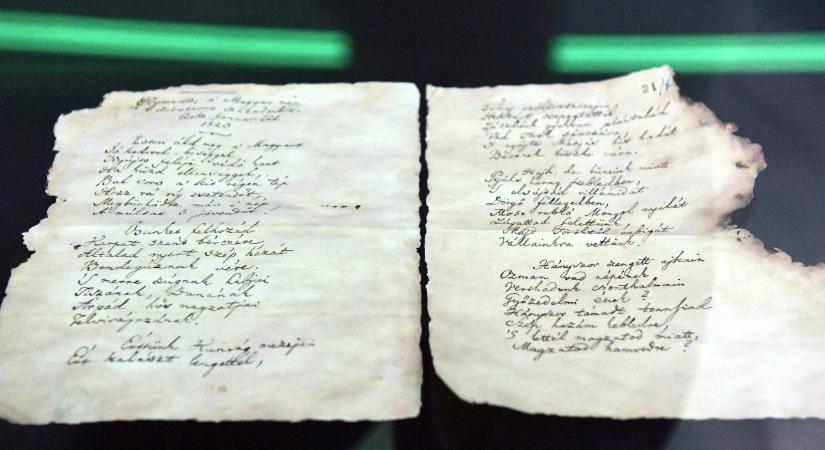 Hymnus, a' Magyar nép
zivataros századaiból.
Cseke Januar. 22d
1823
Isten áldd meg a' Magyart
Jó kedvvel, bőséggel,
Nyújts feléje védő kart
Ha küzd ellenséggel;
Bal sors a' kit régen tép
Hozz rá víg esztendőt,
Megbünhödte már e' nép
A' multat 's jövendőt.
Őseinket felhozád
Kárpát szent bérczére,
Általad nyert szép hazát
Bendegúznak vére.
'S merre zúgnak habjai
Tiszának, Dunának
Árpád hős magzatjai
Felvirágozának.
Értünk Kunság mezejin
Ért kalászt lengettél,
Tokaj szőlővesszein
Nektárt csepegtettél.
Zászlónk gyakran plántálád
Vad Török sánczára,
'S nyögte Mátyás bús hadát
Bécsnek büszke vára.
Hajh, de bűneink miatt
Gyúlt harag kebledben,
'S elsújtád villámidat
Dörgő fellegedben,
Most rabló Mongol nyilát
Zúgattad felettünk,
Majd Töröktől rabigát
Vállainkra vettünk.
Hányszor zengett ajkain
Ozman vad népének
Vert hadunk csonthalmain
Győzedelmi ének?
Hányszor támadt tenfiad
Szép hazám kebledre,
'S lettél magzatod miatt
Magzatod hamvvedre?